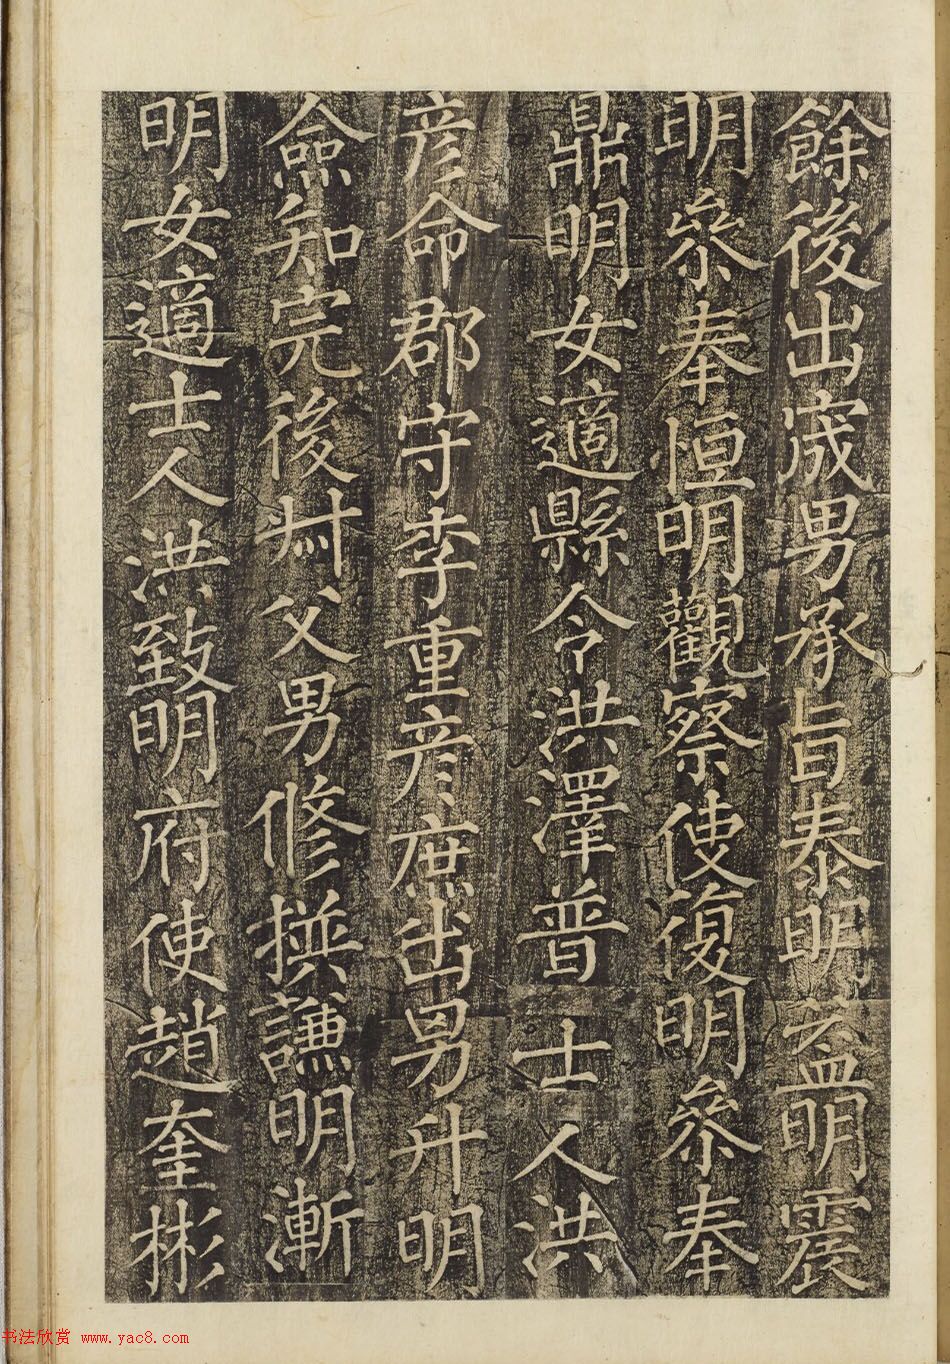 餘後出宬男承旨泰明益明震
明參奉恒明觀察使復明參奉
鼎明女適縣令洪澤普士人洪
彦命郡守李重彦庶出男升明
僉知完後父男修撰謙明漸
明女適士人洪致明府使趙奎彬
书法欣赏 www.yac8.com